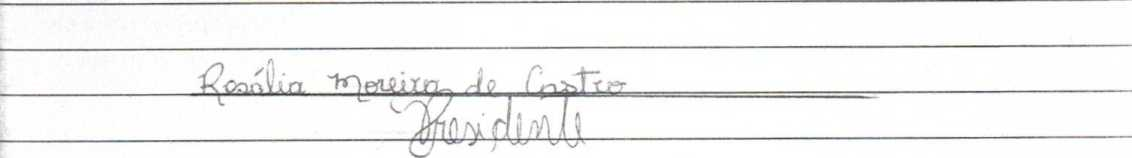 Rosália Moreira de Castro
Presidente